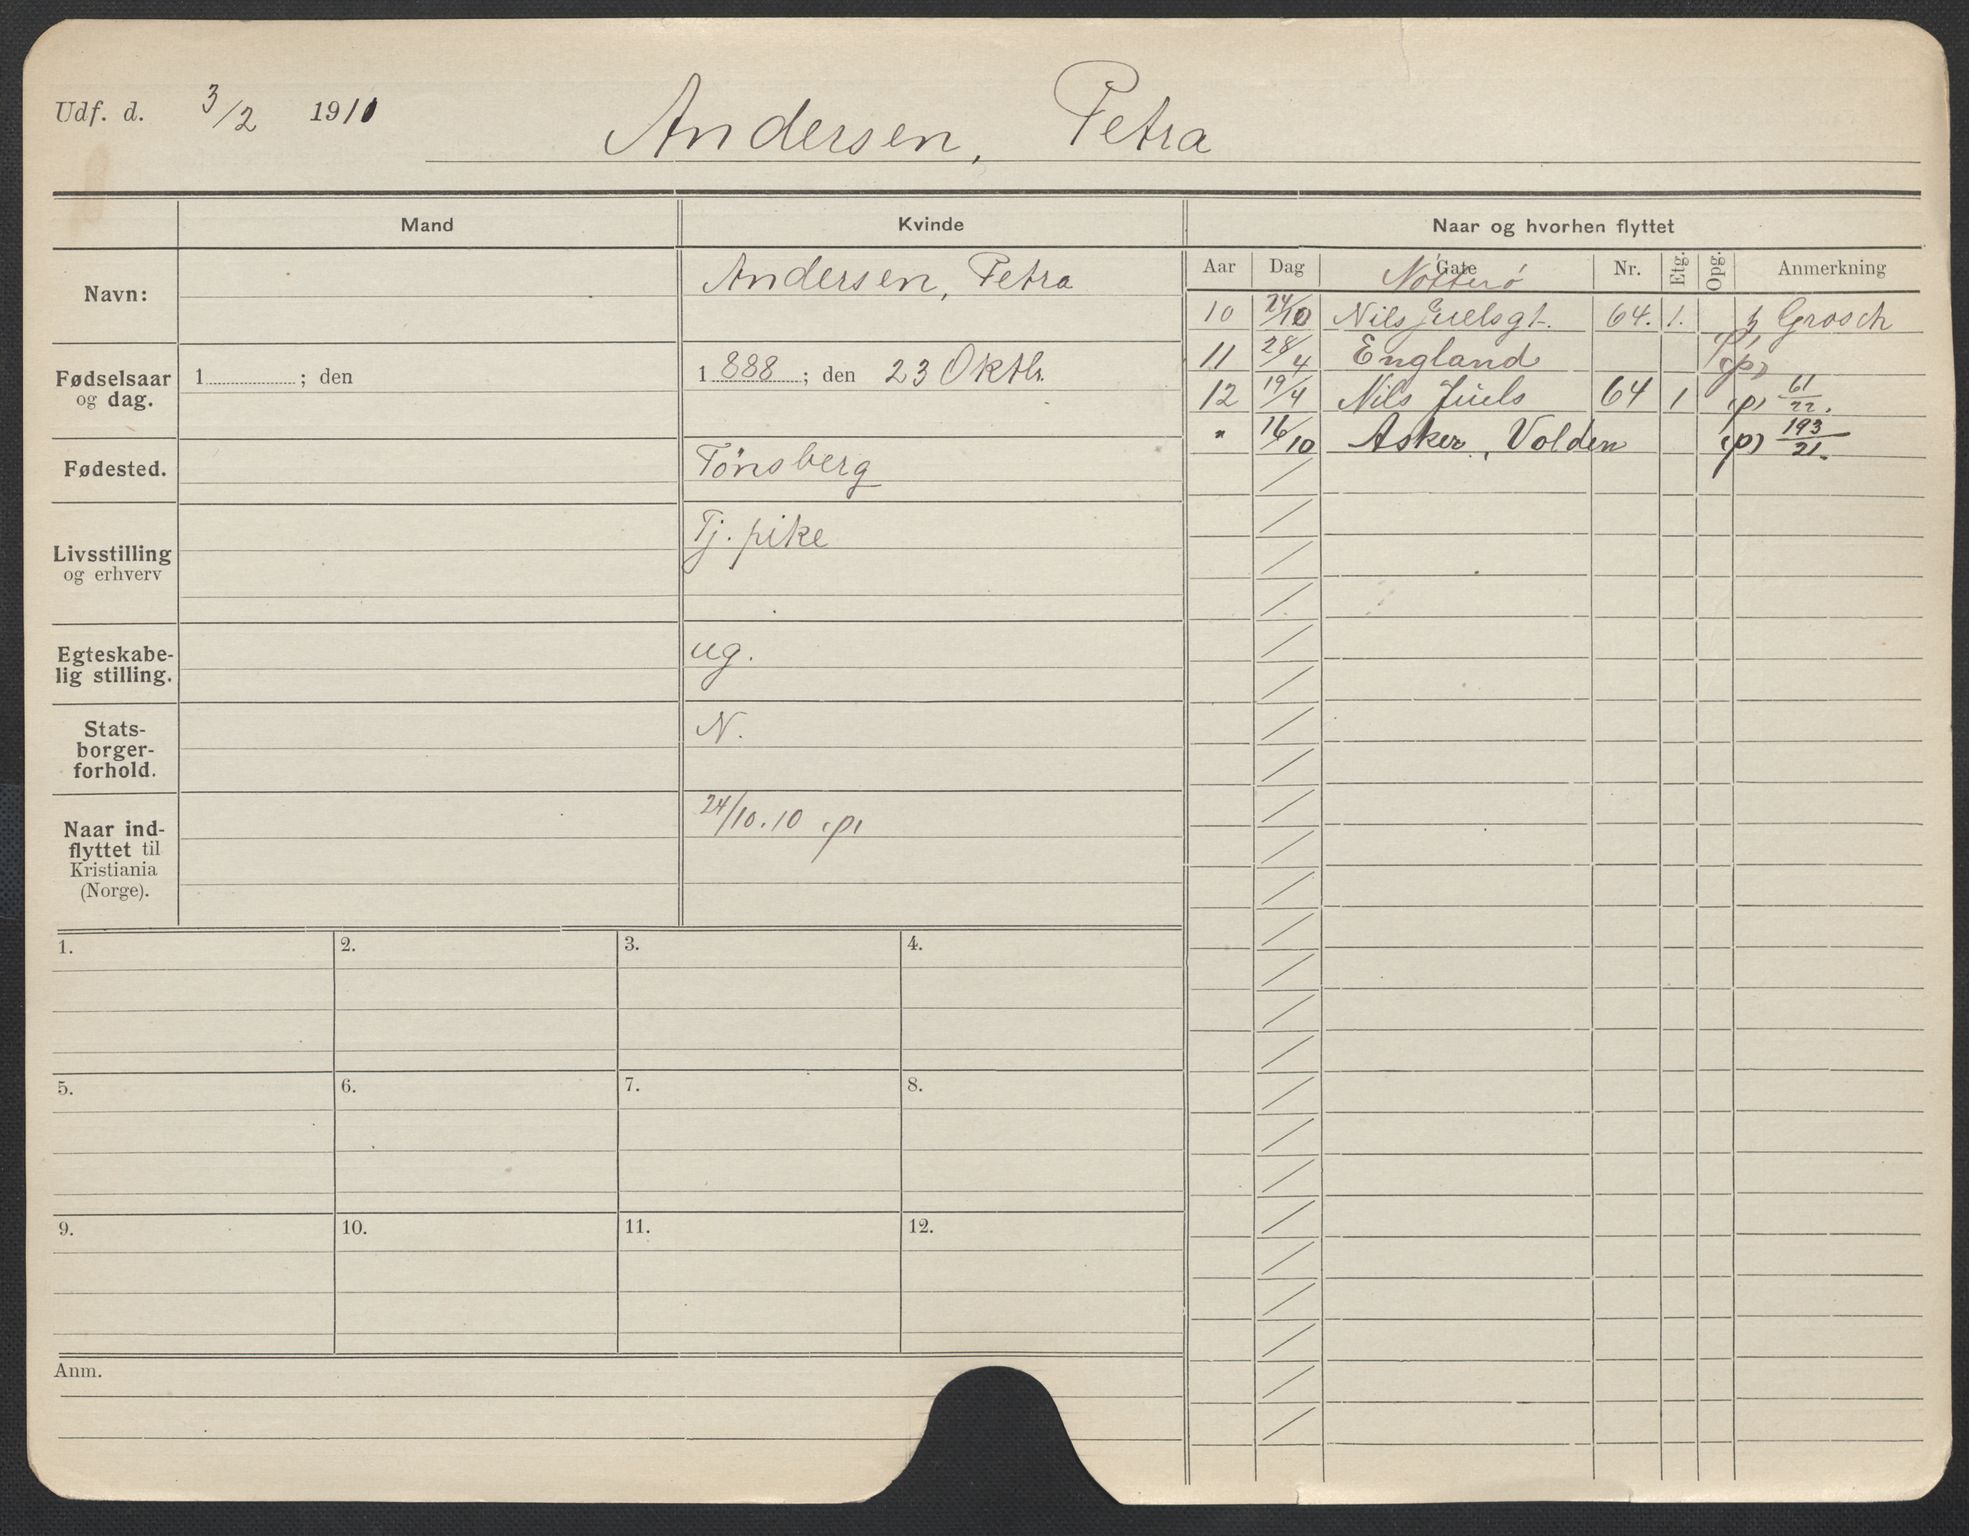 Udf. d. 3/2 1911
Andersen, Petra
Mand Kvinde Naar og hvorhen flyttet
Navn: Andersen, Petra
Fødselsaar og dag. 1 ; den 1 888 ; den 23 Oktbr.
Fødested. Tönsberg
Livsstilling og erhverv Tj. pike
Egteskabe-
lig stilling. ug.
Stats-
borger-
forhold. N.
Naar ind-
flyttet til
Kristiania
(Norge). 24/10.10 (p)
Aar Dag Gate Nr. Etg. Opg. Anmerkning
Nötterö
10 24/10 Nils Juelsgt. 64. 1. Grosch
11 28/4 England (p)
12 19/4 Nils Juels 64 1 (p) 61/22.
" 16/10 Asker, Volden (p) 193/21.
1. 2. 3. 4.
5. 6. 7. 8.
9. 10. 11. 12.
Anm.